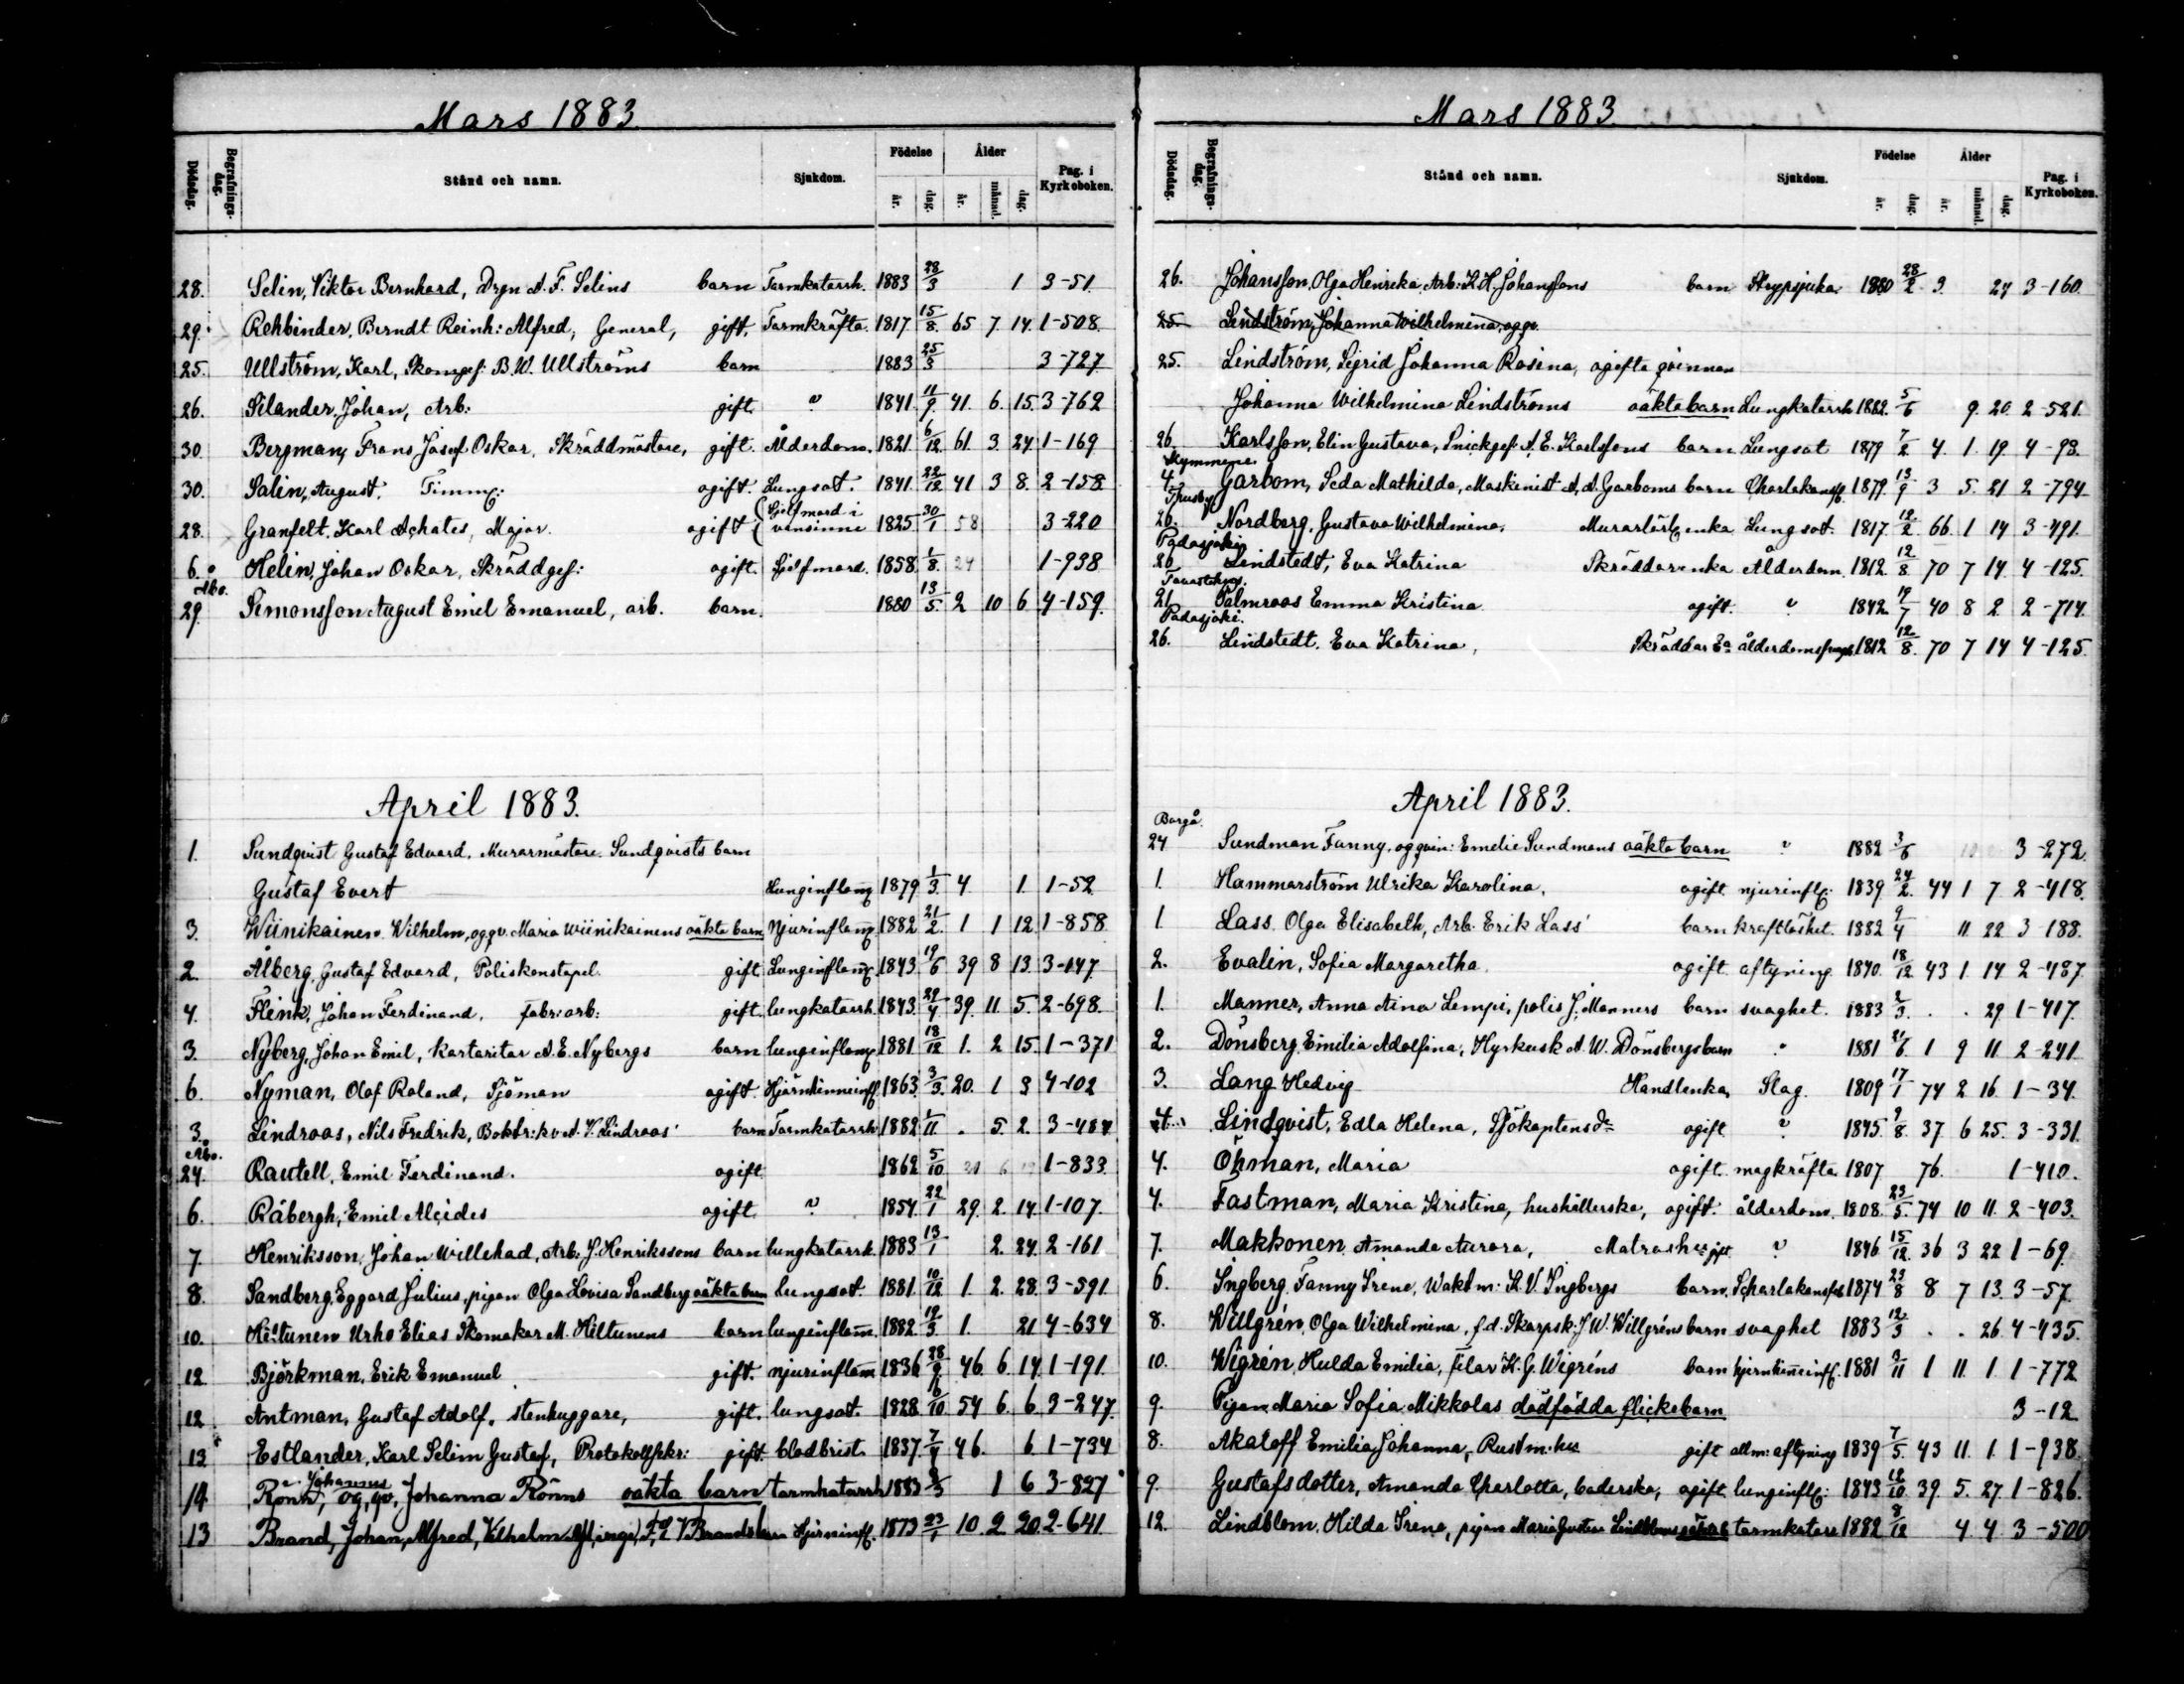 Mars 1883
Dödsdag. Begrafnings-dag. Stånd och namn. Sjukdom. Födelse år. dag. Ålder år. månad. dag. Pag. i Kyrkoboken.
28. Selin, Viktor Bernhard, Drgn A. F. Selins barn Tarmkatarrh. 1883 28/3 1 3-51
29. Rehbinder, Berndt Reinh: Alfred, General, gift. Tarmkräfta 1817. 15/8. 65 7 14. 1-508.
25. Ullström, Karl, Skomgef: B. W. Ullströms barn 1883 25/3 3-727
26. Silander, Johan, Arb: gift. ? 1841. 11/9. 41. 6. 15. 3-762
30. Bergman, Frans Josef Oskar, Skräddmästare, gift. Ålderdom. 1821. 6/12 61 3 24 1-169
30. Salin, August. Timm: ogift. Lungsot. 1841. 22/12 41 3 8. 2-158
28. Granfelt, Karl Achates, Major. ogift (Sjelfmord i vansinne 1825 30/1 58 3-220
6. Helin, Johan Oskar, Skräddgef: ogift. Sjelfmord. 1858. 1/8. 24 1-938
Åbo.
29. Simonsson August Emil Emanuel, arb. barn. 1880 13/5 2 10 6 4-159.
April 1883.
1. Sundqvist Gustaf Edvard. Murarmästare Sundqvists barn
Gustaf Evert Lunginflamm 1879 1/3. 4. 1. 1-52
3. Wiinikainen Wilhelm, og.qv. Maria Wiinikainens oäkta barn Njurinflam 1882 21/2. 1 1 12. 1-858.
2. Ålberg, Gustaf Edvard, Poliskonstapel. gift Lunginflam 1843. 19/6 39 8 13. 3-147
4. Flink, Johan Ferdinand, fabr: arb: gift. lungkatarrh. 1843. 29/4 39. 11 5. 2-698.
3. Nyberg, Johan Emil, kartaritar A. E. Nybergs barn lunginflam 1881 18/12 1. 2 15. 1-371
6. Nyman, Olof Roland, Sjöman ogift. Hjärnhinneinfl 1863. 3/3. 20. 1 3 4-102
3. Lindroos, Nils Fredrik, Boktr: k v A. V. Lindroos' barn Tarmkatarrh 1882 1/11. . 5. 2. 3-484
Åbo.
24. Rautell, Emil Ferdinand. ogift 1862 5/10 1-833
6. Råbergh, Emil Alcides ogift ? 1854. 22/1 29. 2. 14. 1-107.
7 Henriksson, Johan Willehad, Arb: J. Henrikssons barn lungkatarrh. 1883 13/1 2. 24. 2-161
8. Sandberg, Eggard Julius, pigan Olga Lovisa Sandberg oäkta barn lungsot. 1881. 10/12 1. 2. 28. 3-591
10. Hiltunen Urho Elias Skomakar M. Hiltunens barn lunginflam. 1882. 19/3. 1. 21 4-634
12 Björkman, Erik Emanuel gift. njurinflam 1836 28/9 46. 6. 14. 1-191.
12. Antman, Gustaf Adolf, stenhuggare, gift. lungsot. 1828. 6/10 54 6. 6. 3-247.
13 Estlander, Karl Selim Gustaf, Protokollsekr: gift. blodbrist. 1837. 7/4 46. 6. 1-734
Johannes
14. Rönn, og. qv. Johanna Rönns oäkta barn tarmkatarrh 1883 1 6 3-827
13 Brand, Johan, Alfred, Vilhelm, V. Brands barn Hjärninfl. 1873 23/1 10 2 20. 2-641
Mars 1883
Dödsdag. Begrafnings-dag. Stånd och namn. Sjukdom. Födelse år. dag. Ålder år. månad. dag. Pag. i Kyrkoboken.
26. Johansson, Olga Henrika, Arb: K. H. Johanssons barn Strypsjuka 1880 28/2 3. 27 3-160.
25 Lindström, Johanna Wilhelmina, og.qv.
25. Lindström, Sigrid Johanna Rosina, ogifta qvinnan
Johanna Wilhelmina Lindströms oäkta barn Lungkatarrh 1882. 5/6 9. 20. 2-521.
26. Karlsson, Elin Gustava, Snickgef: A. E. Karlssons barn Lungsot 1879 7/2 4. 1. 19. 4-93.
Kymmene
4. Garbom, Seda Mathilda, Maskinist A. A. Garboms barn Charlakansf. 1879. 13/9 3 5. 21 2-794
Thusby
26. Nordberg, Gustava Wilhelmina, Murarlärl enka Lungsot. 1817. 12/2 66. 1 14 3-491.
Padasjoki
20 Lindstedt, Eva Katrina Skräddarenka Ålderdom. 1812. 12/8 70 7 14. 4-125.
Tavastehus.
21. Palmroos Emma Kristina. ogift. ? 1842. 19/7 40 8 2 2-714.
Padasjoki.
26. Lindstedt, Eva Katrina, Skräddar Ea ålderdomssvagh. 1812 12/8. 70 7 14 4-125.
April 1883.
Borgå.
24 Sundman Fanny, og qvin: Emelie Sundmans oäkta barn ? 1882 3/6 3-272.
1. Hammarström Ulrika Karolina, ogift njurinfl: 1839. 24/2. 44 1 7 2-418.
1 Lass Olga Elisabeth, Arb. Erik Lass' barn kraftlöshet. 1882 9/4 11. 22 3 188.
2. Evalin, Sofia Margaretha ogift aftyning. 1840. 18/12 43 1. 14 2-487.
1. Manner, Anna Aina Lempi, polis J. Manners barn svaghet. 1883 2/3. . . 29 1-417.
2. Dönsberg, Emilia Adolfina, Hyrkusk A. W. Dönsbergs barn " 1881 21/6. 1 9 11 2-241
3. Lang Hedvig Handl enka, Slag. 1809 17/1 74 2 16. 1-34.
4. Lindqvist, Edla Helena, Sjökaptens dr ogift ? 1845. 9/8. 37 6 25. 3-331.
4. Öhman, Maria ogift magkräfta. 1807 76. 1-410.
4. Fastman, Maria Kristina, hushållerska, ogift. ålderdom. 1808. 23/5. 74 10 11. 2-403.
7. Makkonen Amanda Aurora, Matros hu gift ? 1846 15/12. 36 3 22 1-69.
6. Ingberg Fanny Irene, Waktm: K. V. Ingbergs barn. Scharlakansfeb 1874 23/8 8 7 13. 3-57.
8. Willgrén, Olga Wilhelmina, f.d. Skarpsk: J. W. Willgréns barn svaghet 1883 12/3 . . 26. 4-435.
10. Wigrén Hulda Emilia, filar K. G. Wigréns barn hjernhinneinfl. 1881 9/11 1 11. 1 1-772
9. Pigan Maria Sofia Mikkolas dödfödda flickebarn 3-12
8. Akatoff Emilia Johanna, Rustm: hu gift allm: aftyning 1839 7/5. 43 11. 1. 1-938.
9. Gustafsdotter, Amanda Charlotta, baderska, ogift lunginfl: 1843 12/10. 39. 5. 27. 1-826.
12. Lindblom, Hilda Irene, pigan Maria Gustava Lindbloms oäkta b tarmkatarr 1882 8/12 4 4 3-500